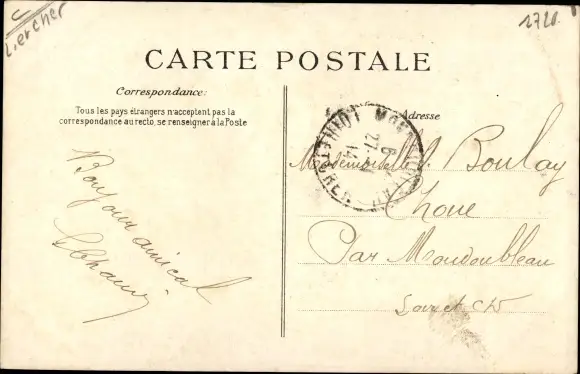 Lercher
1720
CARTE POSTALE
Correspondance:
Tous les pays étrangers n'acceptent pas la
correspondance au recto, se renseigner à la Poste
Bonjour amical
Adresse
Mademoiselle S. Boulay
Choue
Par Mondoubleau
Loir et Ch
LOIR-ET-CHER
6
27-
14